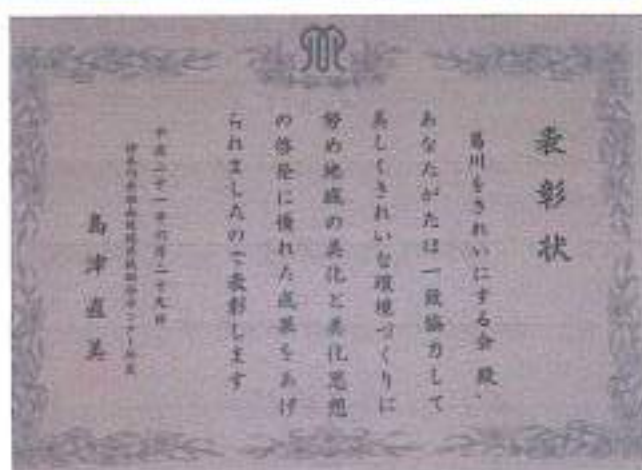 表彰状
葛川をきれいにする会 殿
あなたがたは一致協力して
美しくきれいな環境づくりに
努め地域の美化と美化思想
の啓発に優れた成果をあげ
られましたので表彰します
平成二十一年六月二十九日
島津直美